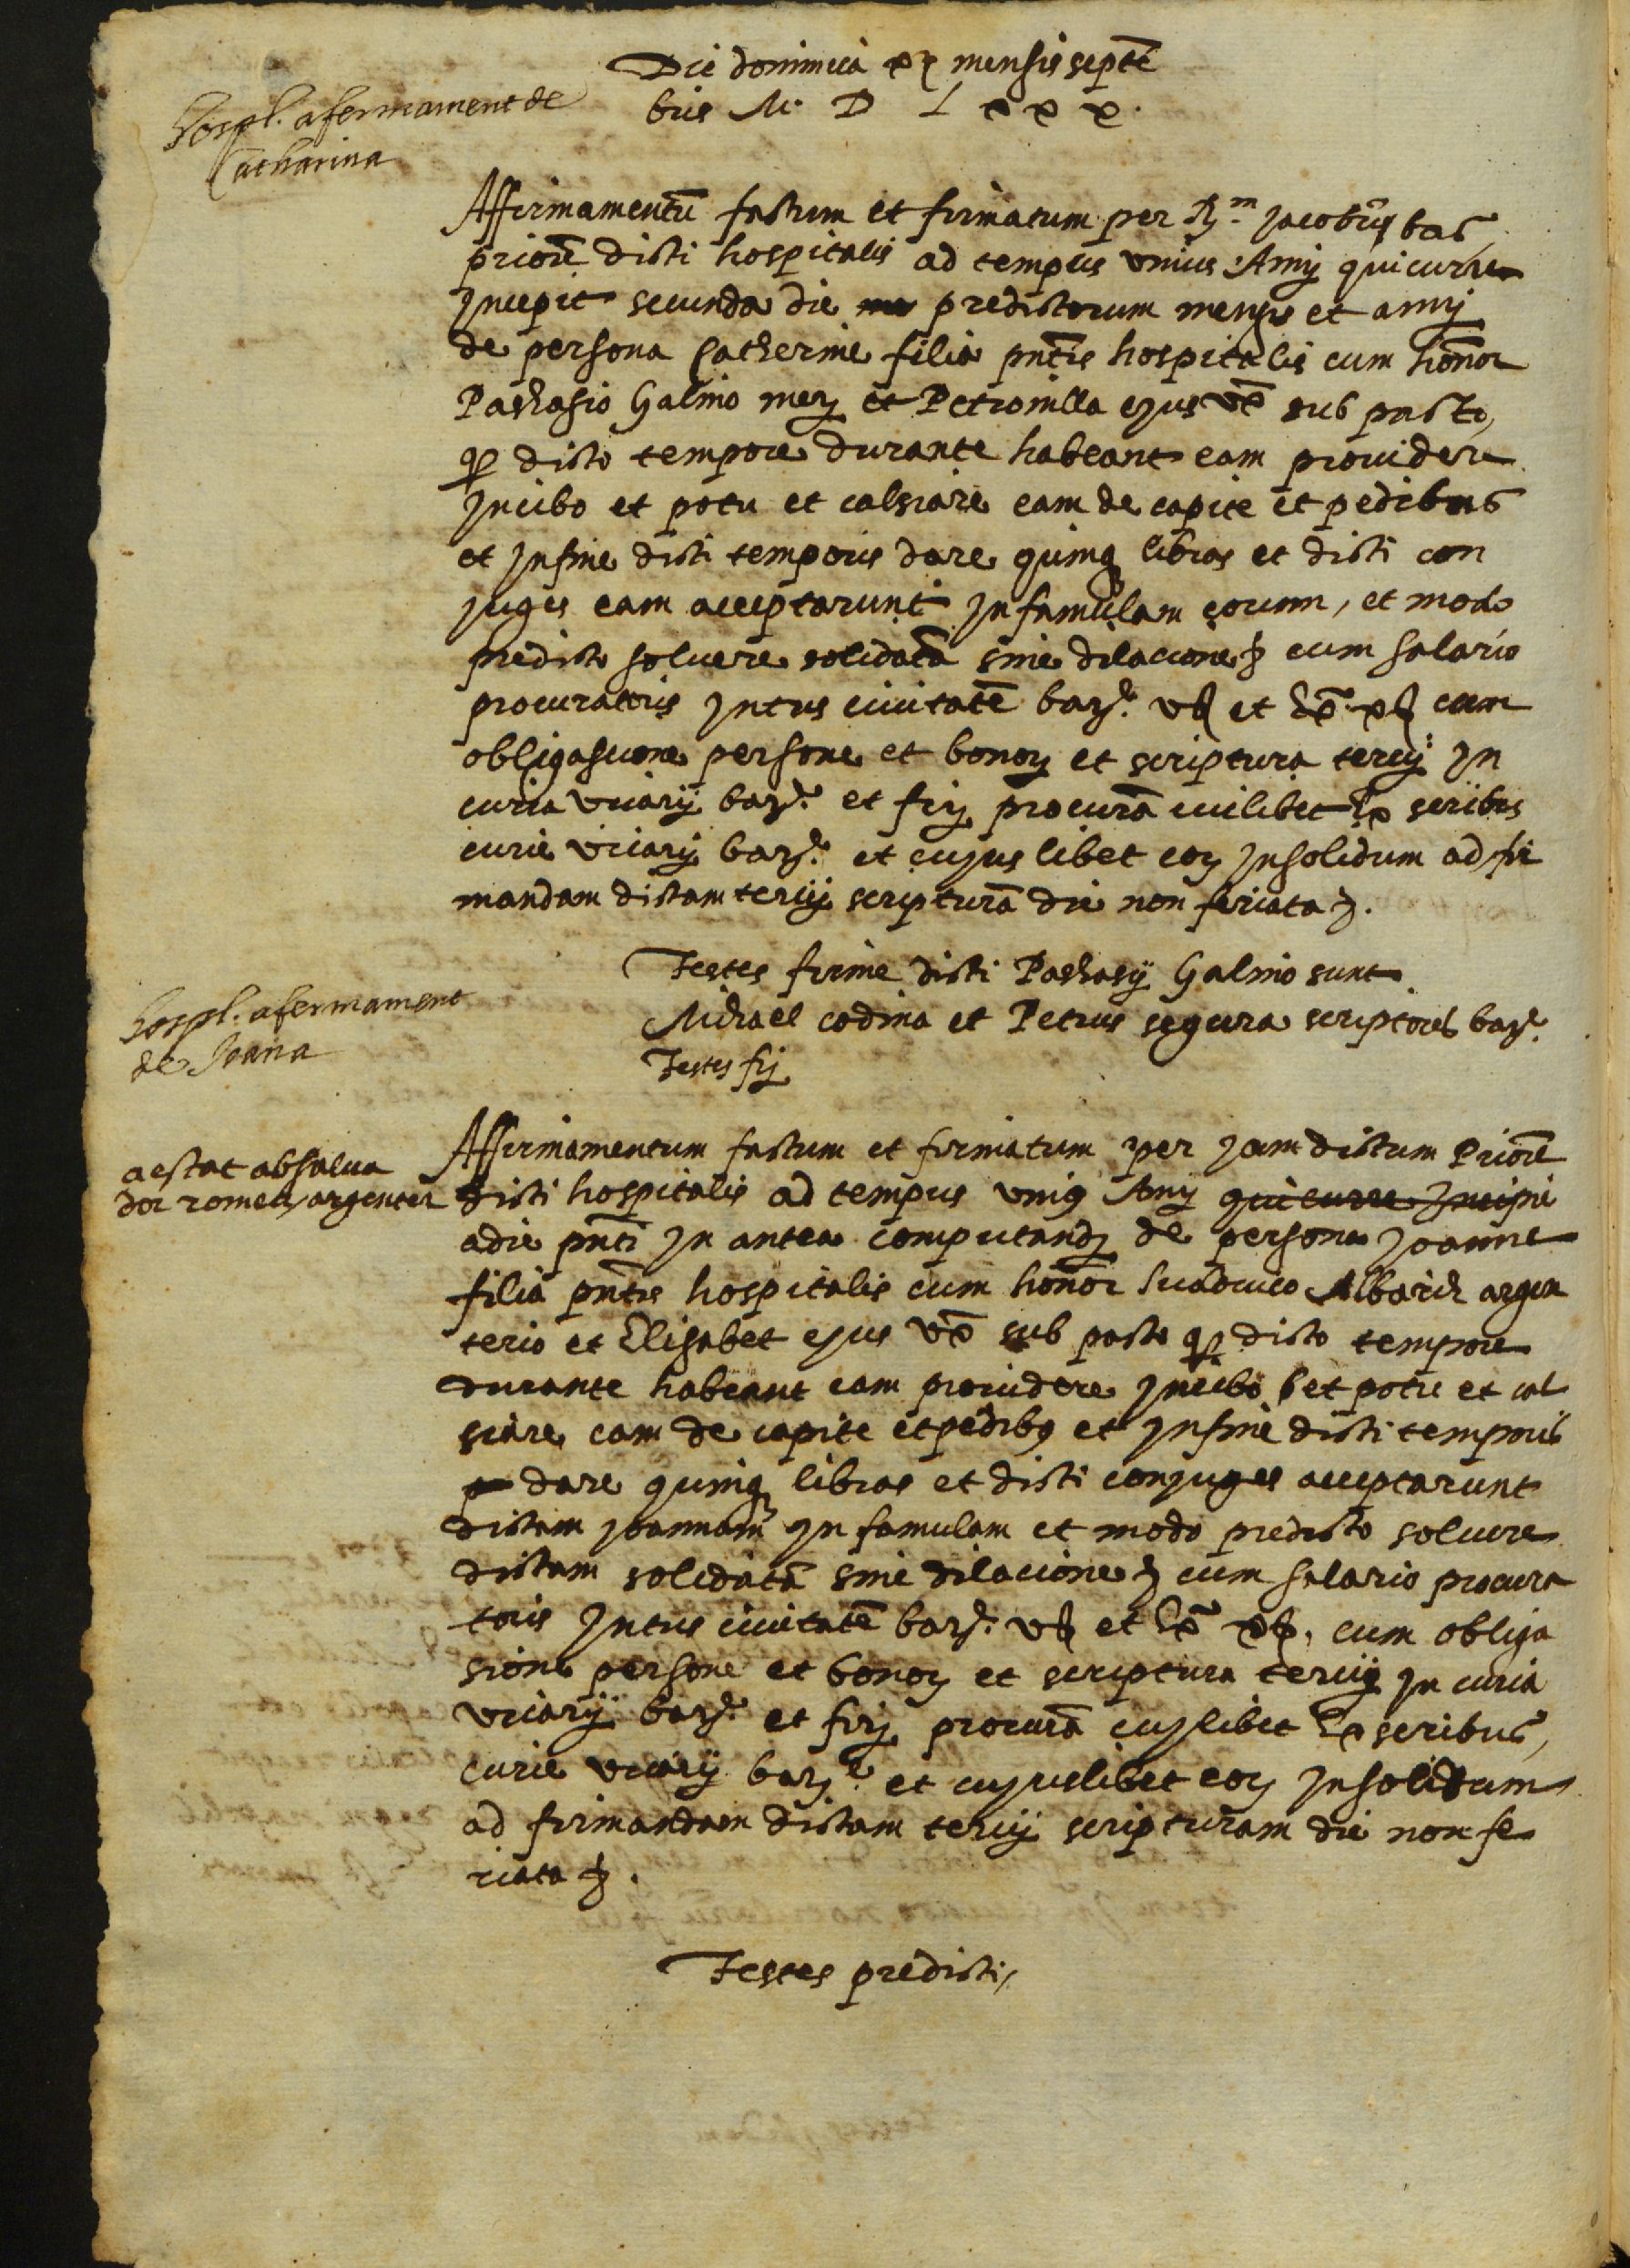 Die dominica xj mensis septẽ
bris M. D L x x x.
hospl. afermament de
Catharina
Affirmamentũ factum et firmatum per Rm Jacobũ bas
priorẽ dicti hospitalis ad tempus vnius Anny qui currere
Incepit secunda die predictorum mensis et anny
de persona Catherine filia pñtis hospitalis cum honor
Paschasio Galino mer et Petronilla ejus vx̃ sub pacto,
q dicto tempore durante habeant eam prouidere
Incibo et potu et calsiare eam de capite et pedibus
et Infine dicti temporis dare quinq libras et dicti con
juges eam acceptarunt Infamulam eorum, et modo
predicto soluere solidatã sine dilacione cum salario
procuratoris Intus ciuitatẽ barẽ. vß et ex̃ xß cum
obligascione persone et bonor et scriptura tercij In
curia vicarij barẽ. et firj procurã cuilibet ex scribis
curie vicarij barẽ. et cujus libet eor Insolidum ad fir
mandam dictam tercij scripturã die non feriata.
Testes firme dicti Paschasij Galino sunt
Michael codina et Petrus segura scriptores barẽ.
Testes fij
hospl. afermament
de Joana
aestat absalua
dor romeu argenter
Affirmamentum factum et firmatum per jam dictum Priorẽ
dicti hospitalis ad tempus vnius Anny qui currere Incipi
adie pñti In antea computandj de persona Joanne
filia pñtis hospitalis cum honor Ludouico Albarich argen
terio et Elisabet ejus vx̃ sub pacto q dicto tempore
durante habeant eam prouidere Incibo et potu et cal
siare eam de capite et pedibus et Infine dicti temporis
dare quinq libras et dicti conjuges acceptarunt
dictam Joannam In famulam et modo predicto soluere
dictam solidatã sine dilacione cum salario procura
toris Intus ciuitatẽ barẽ. vß et ex̃ xß, cum obliga
sione persone et bonor et scriptura tercij In curia
vicarij barẽ. et firj procurã cujlibet ex scribus,
curie vicarij barẽ. et cujuslibet eor Insolidum
ad firmandam dictam tercij scripturam die non fe
riata.
Testes predicti,